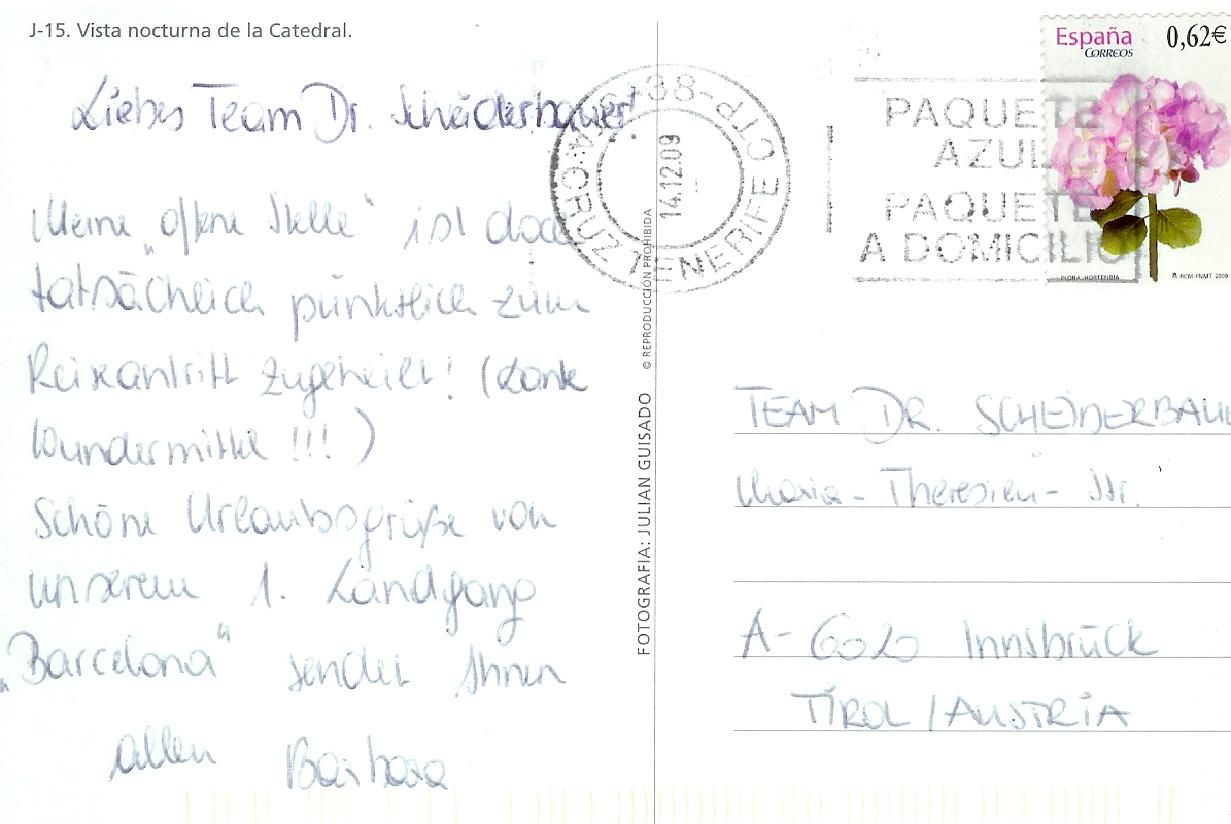 J-15. Vista nocturna de la Catedral.
Liebes Team Dr. Scheiderbauer!
Meine „offene Stelle" ist doch
tatsächlich pünktlich zum
Reiseantritt zugeheilt! (dank
Wundermittel !!!)
Schöne Urlaubsgrüße von
unserem 1. Landgang
„Barcelona" sendet Ihnen
allen Barbara
FOTOGRAFIA: JULIAN GUISADO © REPRODUCCIÓN PROHIBIDA
38-
CTP
STA. CRUZ TENERIFE
14.12.09
PAQUETE
AZUL
PAQUETE
A DOMICILIO
España 0,62€
CORREOS
FLORA-HORTENSIA RCM-FNMT 2009
TEAM DR. SCHEIDERBAU
Maria-Theresien-Str.
A-6020 Innsbrück
TIROL/AUSTRIA